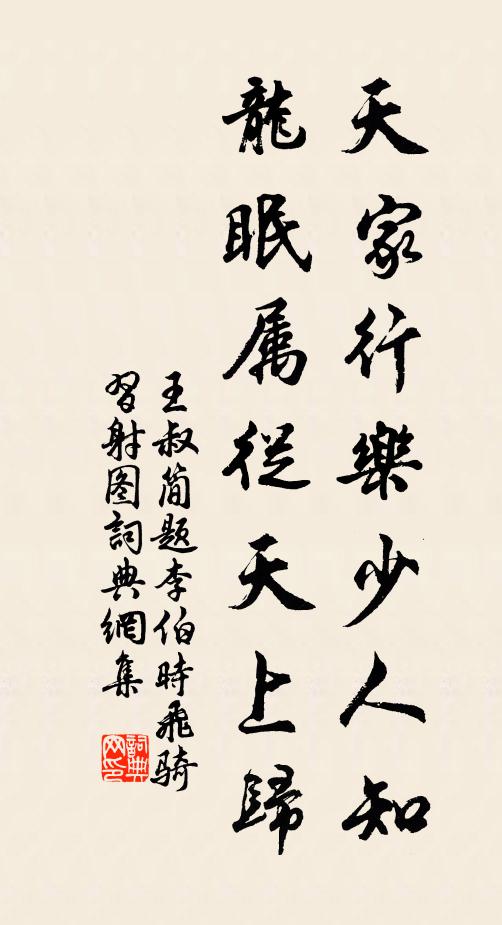 天家行樂少人知
龍眠属從天上歸
王叔简题李伯時飛騎
習射图詞典網集
詞典
网印